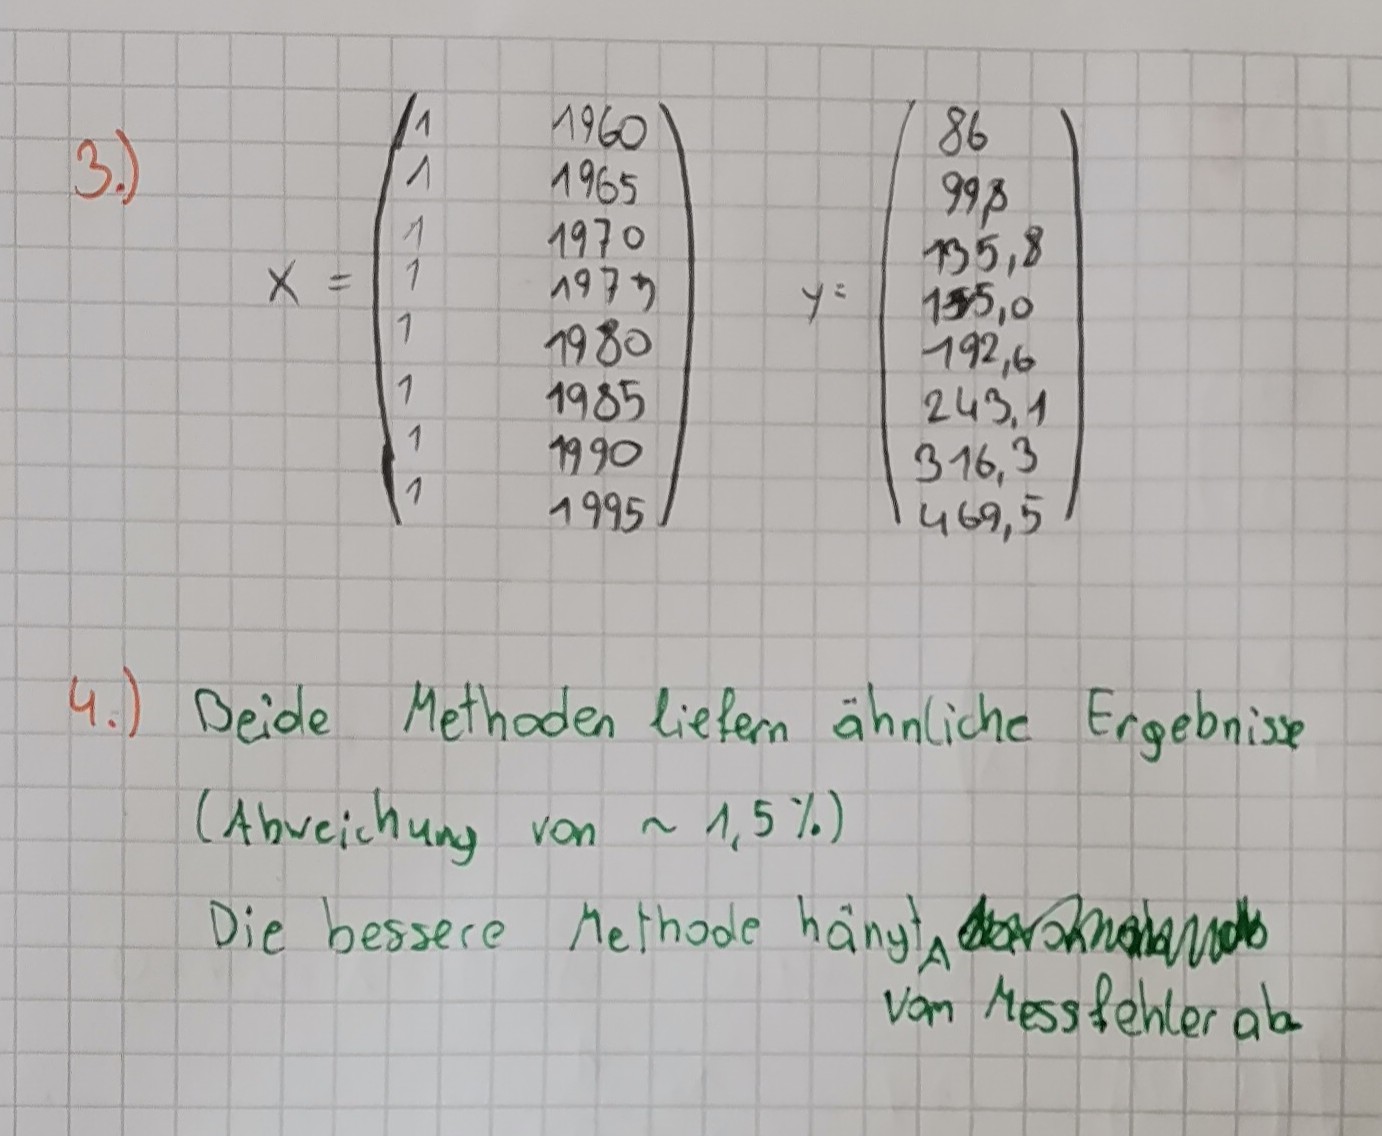 3.)
X = ( 1 1960
1 1965
1 1970
1 1975
1 1980
1 1985
1 1990
1 1995 )
y= ( 86
99,8
135,8
155,0
192,6
243,1
316,3
469,5 )
4.) Beide Methoden liefern ähnliche Ergebnisse
(Abweichung von ~ 1,5%)
Die bessere Methode hängt
vom Messfehler ab